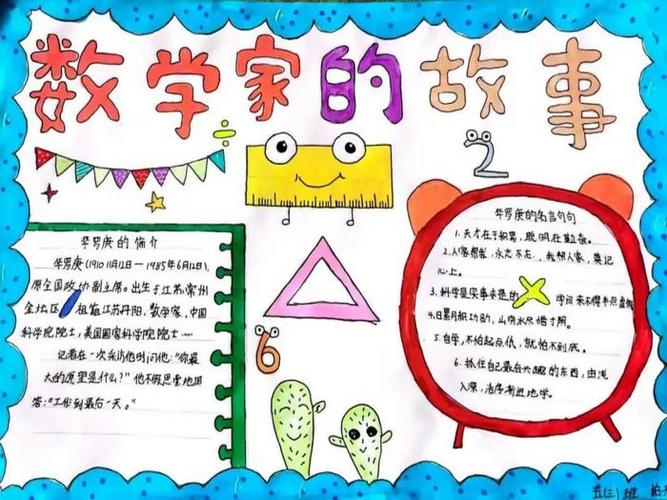 数学家的故事
÷
2
华罗庚的简介
华罗庚(1910 11月12日—1985年6月12日),
原全国政协副主席。出生于江苏常州
金坛区,祖籍江苏丹阳,数学家,中国
科学院院士,美国国家科学院院士……
记者在一次采访他时问他:"你最
大的愿望是什么?"他不假思索地回
答:"工作到最后一天。"
6
华罗庚的名言句句
1.天才在于积累,聪明在于勤奋。
2.人家帮我,永志不忘;我帮人家,莫记
心上。
3.科学是实事求是的学问来不得半点虚假
4.日累月积功勤,山穷水尽惜寸阴。
5.自学,不怕起点低,就怕不到底。
6.抓住自己最有兴趣的东西,由浅
入深,循序渐进地学。
五(三)班